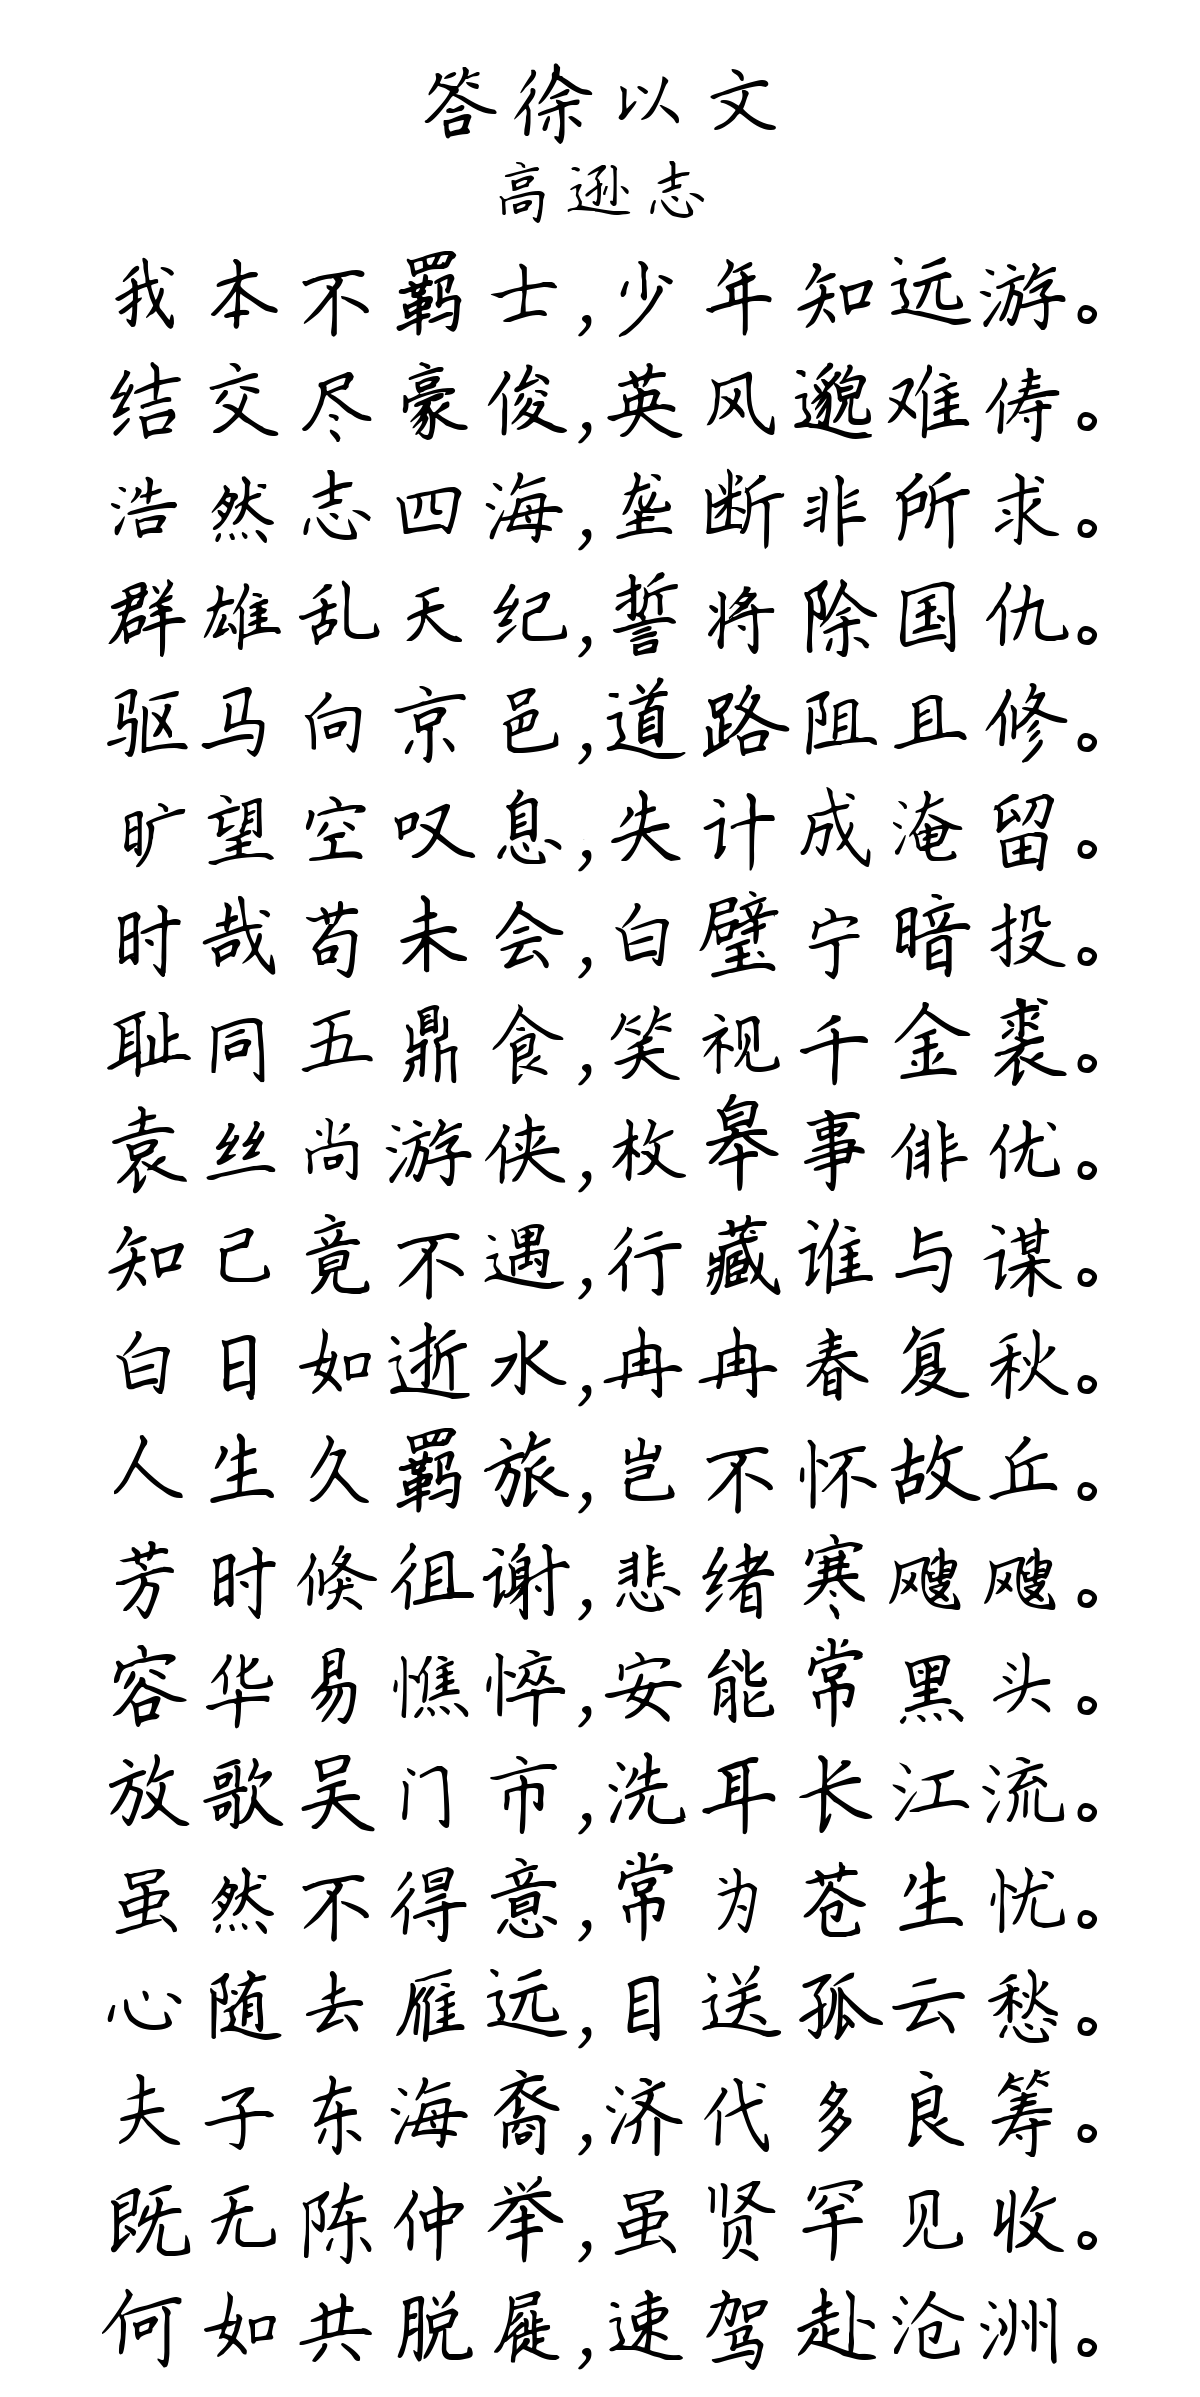 答徐以文
高逊志
我本不羁士,少年知远游。
结交尽豪俊,英风邈难俦。
浩然志四海,垄断非所求。
群雄乱天纪,誓将除国仇。
驱马向京邑,道路阻且修。
旷望空叹息,失计成淹留。
时哉苟未会,白璧宁暗投。
耻同五鼎食,笑视千金裘。
袁丝尚游侠,枚皋事俳优。
知己竟不遇,行藏谁与谋。
白日如逝水,冉冉春复秋。
人生久羁旅,岂不怀故丘。
芳时倏徂谢,悲绪寒飕飕。
容华易憔悴,安能常黑头。
放歌吴门市,洗耳长江流。
虽然不得意,常为苍生忧。
心随去雁远,目送孤云愁。
夫子东海裔,济代多良筹。
既无陈仲举,虽贤罕见收。
何如共脱屣,速驾赴沧洲。